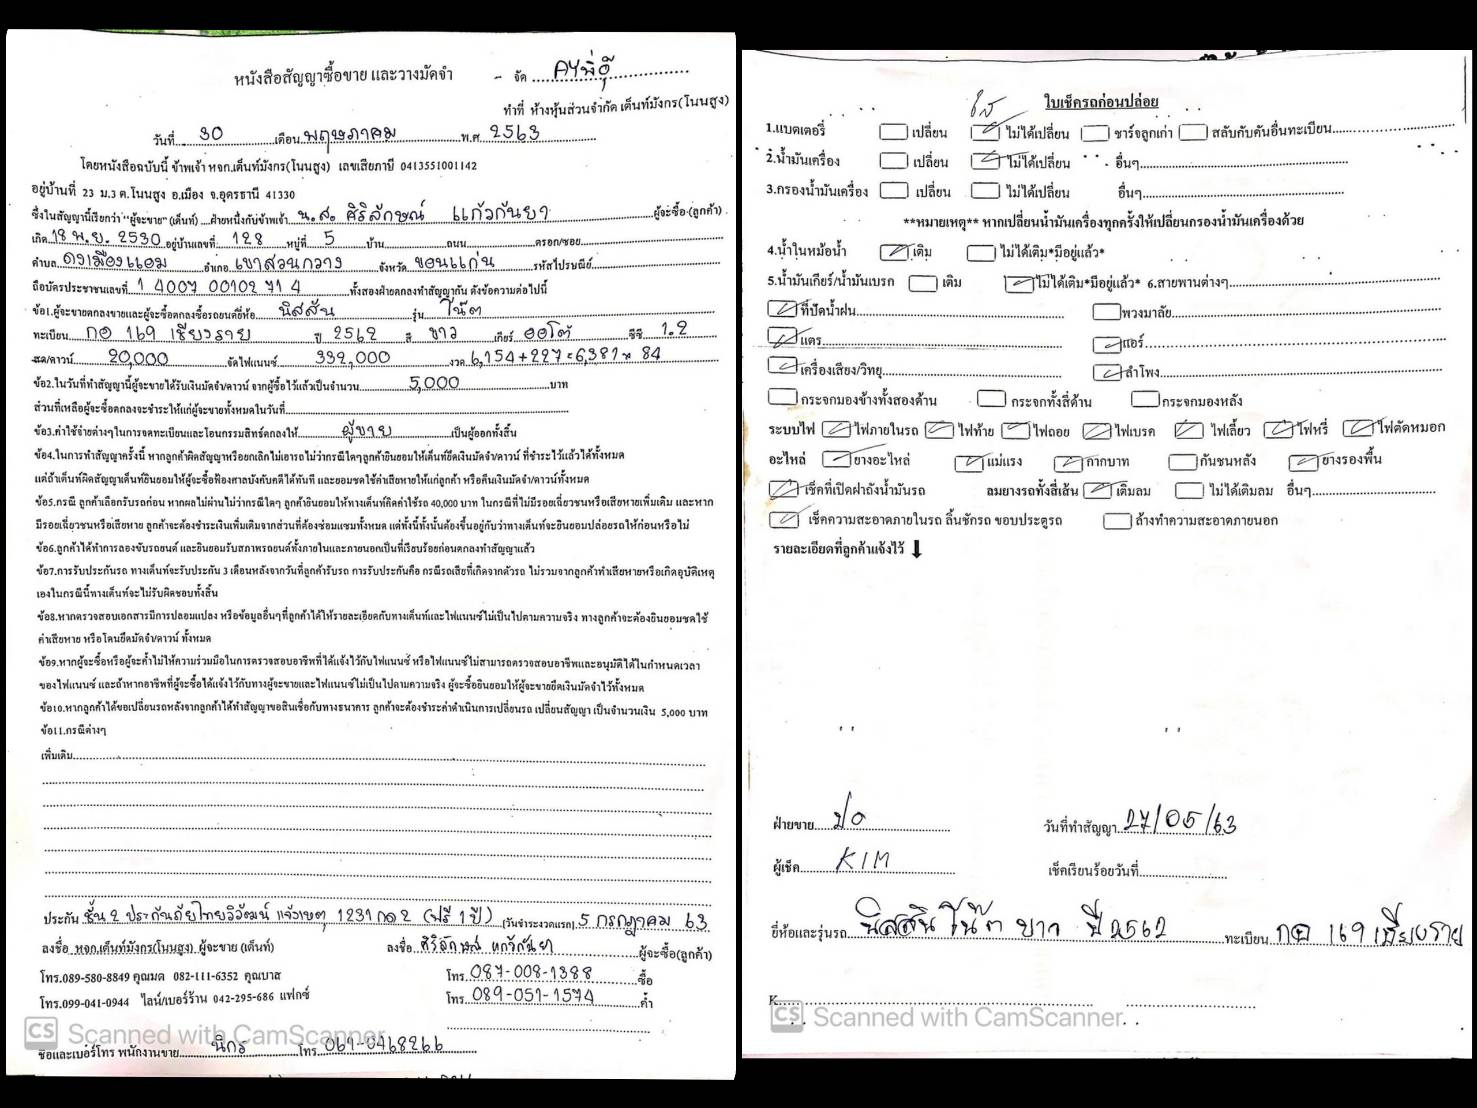 หนังสือสัญญาซื้อขาย และวางมัดจำ
- จัด AYพี่อุ๊
ทำที่ ห้างหุ้นส่วนจำกัด เต็นท์มังกร(โนนสูง)
วันที่ 30 เดือน พฤษภาคม พ.ศ. 2563
โดยหนังสือฉบับนี้ ข้าพเจ้า หจก.เต็นท์มังกร(โนนสูง) เลขเสียภาษี 0413551001142
อยู่บ้านที่ 23 ม.3 ต.โนนสูง อ.เมือง จ.อุดรธานี 41330
ซึ่งในสัญญานี้เรียกว่า "ผู้จะขาย" (เต็นท์) ฝ่ายหนึ่งกับข้าพเจ้า น.ส. ศิริลักษณ์ แก้วกันยา ผู้จะซื้อ (ลูกค้า)
เกิด 18 พ.ย. 2530 อยู่บ้านเลขที่ 128 หมู่ที่ 5 บ้าน ถนน ตรอก/ซอย
ตำบล ดงเมืองแอม อำเภอ เขาสวนกวาง จังหวัด ขอนแก่น รหัสไปรษณีย์
ถือบัตรประชาชนเลขที่ 1 4007 00102 71 4 ทั้งสองฝ่ายตกลงทำสัญญากัน ดังข้อความต่อไปนี้
ข้อ1.ผู้จะขายตกลงขายและผู้จะซื้อตกลงซื้อรถยนต์ยี่ห้อ นิสสัน รุ่น โน๊ต
ทะเบียน กอ 169 เชียงราย ปี 2562 สี ขาว เกียร์ ออโต้ ซีซี 1.2
สด/ดาวน์ 20,000 จัดไฟแนนซ์ 332,000 งวด 6,154+227=6,381 x 84
ข้อ2.ในวันที่ทำสัญญานี้ผู้จะขายได้รับเงินมัดจำ/ดาวน์ จากผู้ซื้อไว้แล้วเป็นจำนวน 5,000 บาท
ส่วนที่เหลือผู้จะซื้อตกลงจะชำระให้แก่ผู้จะขายทั้งหมดในวันที่
ข้อ3.ค่าใช้จ่ายต่างๆในการจดทะเบียนและโอนกรรมสิทธ์ตกลงให้ ผู้ขาย เป็นผู้ออกทั้งสิ้น
ข้อ4.ในการทำสัญญาครั้งนี้ หากลูกค้าผิดสัญญาหรือยกเลิกไม่เอารถไม่ว่ากรณีใดๆลูกค้ายินยอมให้เต็นท์ยึดเงินมัดจำ/ดาวน์ ที่ชำระไว้แล้วได้ทั้งหมด
แต่ถ้าเต็นท์ผิดสัญญาเต็นท์ยินยอมให้ผู้จะซื้อฟ้องศาลบังคับคดีได้ทันที และยอมชดใช้ค่าเสียหายให้แก่ลูกค้า หรือคืนเงินมัดจำ/ดาวน์ทั้งหมด
ข้อ5.กรณี ลูกค้าเลือกรับรถก่อน หากผลไม่ผ่านไม่ว่ากรณีใดๆ ลูกค้ายินยอมให้ทางเต็นท์คิดค่าใช้รถ 40,000 บาท ในกรณีที่ไม่มีรอยเฉี่ยวชนหรือเสียหายเพิ่มเติม และหาก
มีรอยเฉี่ยวชนหรือเสียหาย ลูกค้าจะต้องชำระเงินเพิ่มเติมจากส่วนที่ต้องซ่อมแซมทั้งหมด แต่ทั้งนี้ทั้งนั้นต้องขึ้นอยู่กับว่าทางเต็นท์จะยินยอมปล่อยรถให้ก่อนหรือไม่
ข้อ6.ลูกค้าได้ทำการลองขับรถยนต์ และยินยอมรับสภาพรถยนต์ทั้งภายในและภายนอกเป็นที่เรียบร้อยก่อนตกลงทำสัญญาแล้ว
ข้อ7.การรับประกันรถ ทางเต็นท์จะรับประกัน 3 เดือนหลังจากวันที่ลูกค้ารับรถ การรับประกันคือ กรณีรถเสียที่เกิดจากตัวรถ ไม่รวมจากลูกค้าทำเสียหายหรือเกิดอุบัติเหตุ
เองในกรณีนี้ทางเต็นท์จะไม่รับผิดชอบทั้งสิ้น
ข้อ8.หากตรวจสอบเอกสารมีการปลอมแปลง หรือข้อมูลอื่นๆที่ลูกค้าได้ให้รายละเอียดกับทางเต็นท์และไฟแนนซ์ไม่เป็นไปตามความจริง ทางลูกค้าจะต้องยินยอมชดใช้
ค่าเสียหาย หรือโดนยึดมัดจำ/ดาวน์ ทั้งหมด
ข้อ9.หากผู้จะซื้อหรือผู้จะค้ำไม่ให้ความร่วมมือในการตรวจสอบอาชีพที่ได้แจ้งไว้กับไฟแนนซ์ หรือไฟแนนซ์ไม่สามารถตรวจสอบอาชีพและอนุมัติได้ในกำหนดเวลา
ของไฟแนนซ์ และถ้าหากอาชีพที่ผู้จะซื้อได้แจ้งไว้กับทางผู้จะขายและไฟแนนซ์ไม่เป็นไปตามความจริง ผู้จะซื้อยินยอมให้ผู้จะขายยึดเงินมัดจำไว้ทั้งหมด
ข้อ10.หากลูกค้าได้ขอเปลี่ยนรถหลังจากลูกค้าได้ทำสัญญาขอสินเชื่อกับทางธนาคาร ลูกค้าจะต้องชำระค่าดำเนินการเปลี่ยนรถ เปลี่ยนสัญญา เป็นจำนวนเงิน 5,000 บาท
ข้อ11.กรณีต่างๆ
เพิ่มเติม
ประกัน ชั้น 2 ประกันภัยไทยวิวัฒน์ แจ้งเหตุ 1231 กด 2 (ฟรี 1 ปี) (วันชำระงวดแรก) 5 กรกฎาคม 63
ลงชื่อ หจก.เต็นท์มังกร(โนนสูง) ผู้จะขาย (เต็นท์) ลงชื่อ ศิริลักษณ์ แก้วกันยา ผู้จะซื้อ(ลูกค้า)
โทร.089-580-8849 คุณมด 082-111-6352 คุณบาส โทร. 087-008-1388 ซื้อ
โทร.099-041-0944 ไลน์/เบอร์ร้าน 042-295-686 แฟกซ์ โทร. 089-051-1574 ค้ำ
CS Scanned with CamScanner
ชื่อและเบอร์โทร พนักงานขาย นิกร โทร. 061-0468266
ใบเช็ครถก่อนปล่อย
1.แบตเตอรี่ เปลี่ยน ไม่ได้เปลี่ยน ชาร์จลูกเก่า สลับกับคันอื่นทะเบียน
2.น้ำมันเครื่อง เปลี่ยน ไม่ได้เปลี่ยน อื่นๆ
3.กรองน้ำมันเครื่อง เปลี่ยน ไม่ได้เปลี่ยน อื่นๆ
**หมายเหตุ** หากเปลี่ยนน้ำมันเครื่องทุกครั้งให้เปลี่ยนกรองน้ำมันเครื่องด้วย
4.น้ำในหม้อน้ำ เติม ไม่ได้เติม*มีอยู่แล้ว*
5.น้ำมันเกียร์/น้ำมันเบรก เติม ไม่ได้เติม*มีอยู่แล้ว* 6.สายพานต่างๆ
ที่ปัดน้ำฝน พวงมาลัย
แตร แอร์
เครื่องเสียง/วิทยุ ลำโพง
กระจกมองข้างทั้งสองด้าน กระจกทั้งสี่ด้าน กระจกมองหลัง
ระบบไฟ ไฟภายในรถ ไฟท้าย ไฟถอย ไฟเบรค ไฟเลี้ยว ไฟหรี่ ไฟตัดหมอก
อะไหล่ ยางอะไหล่ แม่แรง กากบาท กันชนหลัง ยางรองพื้น
เช็คที่เปิดฝาถังน้ำมันรถ ลมยางรถทั้งสี่เส้น เติมลม ไม่ได้เติมลม อื่นๆ
เช็คความสะอาดภายในรถ ลิ้นชักรถ ขอบประตูรถ ล้างทำความสะอาดภายนอก
รายละเอียดที่ลูกค้าแจ้งไว้
ฝ่ายขาย วันที่ทำสัญญา 27/05/63
ผู้เช็ค KIM เช็คเรียบร้อยวันที่
ยี่ห้อและรุ่นรถ นิสสัน โน๊ต ขาว ปี 2562 ทะเบียน กอ 169 เชียงราย
K
CS Scanned with CamScanner